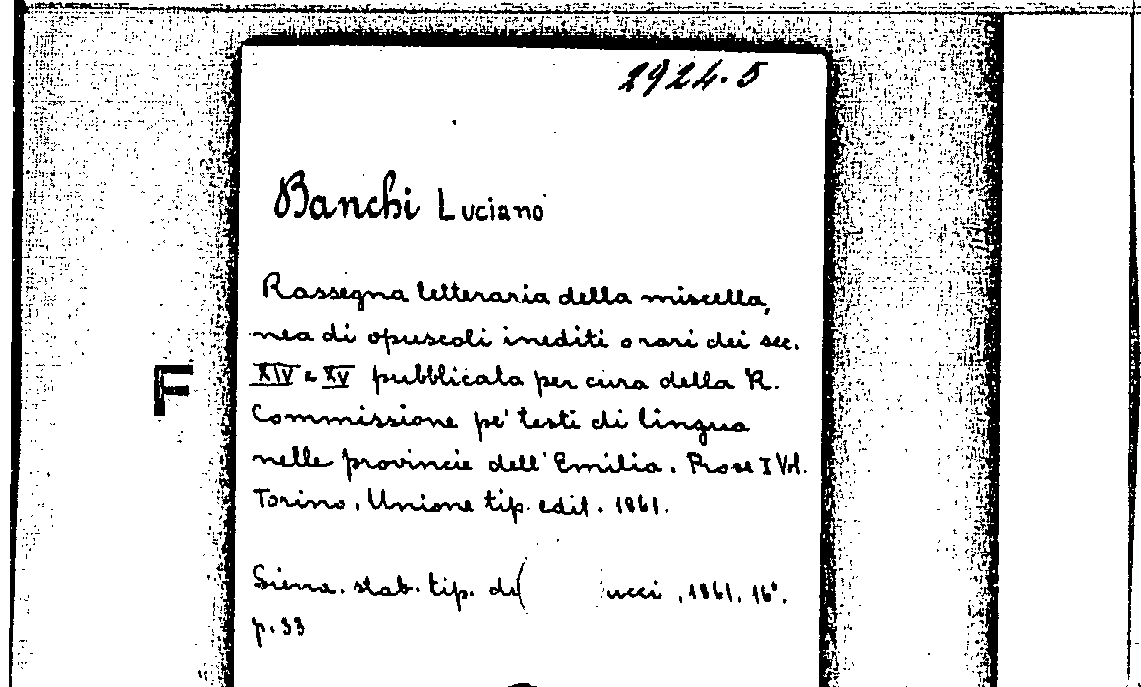 2924.5
Banchi Luciano
Rassegna letteraria della miscella,
nea di opuscoli inediti o rari dei sec.
F
XIV e XV pubblicata per cura della R.
Commissione pe' testi di lingua
nelle provincie dell'Emilia. Prose I Vol.
Torino, Unione tip. edit. 1861.
Siena. stab. tip. di ucci, 1861. 16°.
p. 33